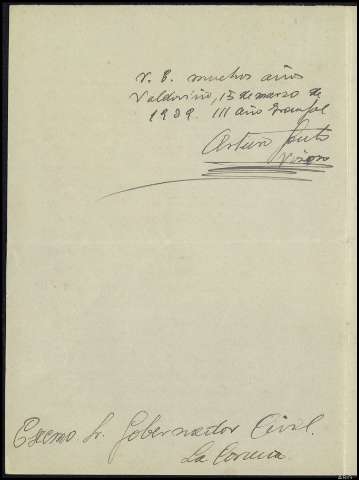 V. E. muchos años
Valdoviño, 15 de marzo de
1939. III año Triunfal
Arturo
Excmo Sr. Gobernador Civil.
La Coruña.